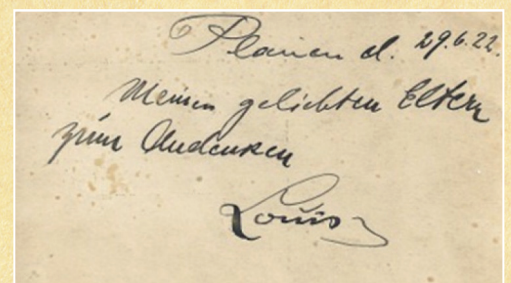 Plauen d. 29.6.22.
Meinen geliebten Eltern
zum Andenken
Louis